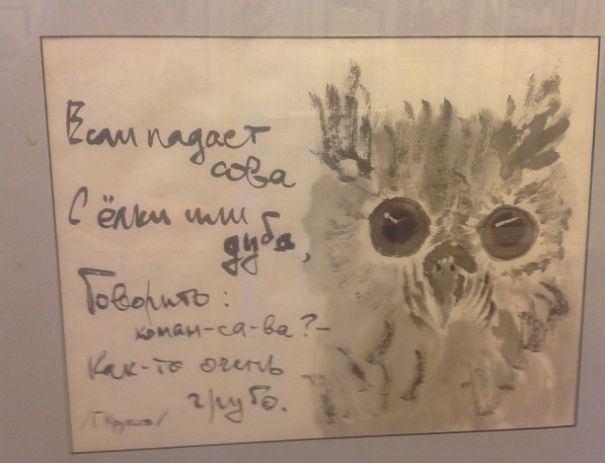 Если падает
сова
С ёлки или
дуба,
Говорить:
коман-са-ва?-
Как-то очень
грубо.